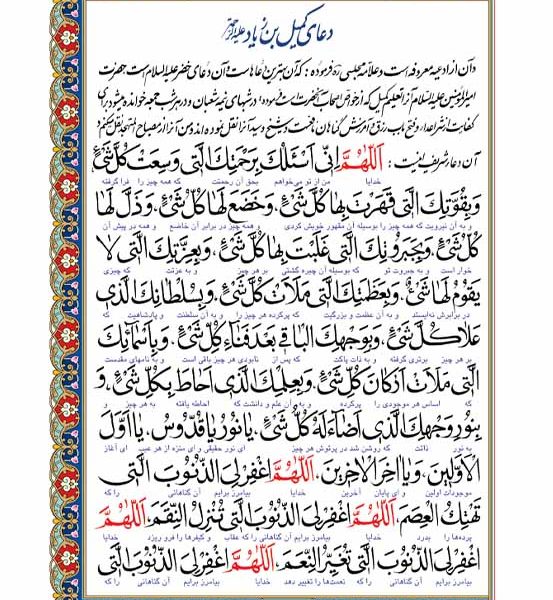 دعای کمیل بن زیاد علیه الرحمه
و آن از ادعیه معروفه است و علامه مجلسی ره فرموده: که آن بهترین دعاها است و آن دعای خضر علیه السلام است حضرت
امیرالمؤمنین علیه السلام آنرا تعلیم کمیل که از خواص اصحاب آنحضرت است فرمود و در شبهای نیمه شعبان و در هر شب جمعه خوانده میشود برای
کفایت از شر اعداء و فتح باب رزق و آمرزش گناهان نافعست و شیخ و سید آنرا نقل نموده اند و من آنرا از مصباح المتهجد نقل میکنم و
آن دعاء شریف اینست: اَللّهُمَّ اِنّی اَسْئَلُكَ بِرَحْمَتِكَ الَّتی وَسِعَتْ كُلَّ شَیْءٍ
خدایا من از تو می‌خواهم بحق آن رحمتت که همه چیز را فرا گرفته
وَبِقُوَّتِكَ الَّتی قَهَرْتَ بِها كُلَّ شَیْءٍ، وَخَضَعَ لَها كُلُّ شَیْءٍ، وَذَلَّ لَها
و به آن نیرویت که همه چیز را بوسیله آن مقهور خویش کردی و همه چیز در برابر آن خاضع و همه در پیش آن
كُلُّ شَیْءٍ، وَبِجَبَرُوتِكَ الَّتی غَلَبْتَ بِها كُلَّ شَیْءٍ، وَبِعِزَّتِكَ الَّتی لا
خوار است و به جبروت تو که بوسیله آن چیره گشتی بر هر چیز و به عزتت که چیزی
یَقُومُ لَها شَیْءٌ، وَبِعَظَمَتِكَ الَّتی مَلَأَتْ كُلَّ شَیْءٍ، وَبِسُلْطانِكَ الَّذی
در برابرش نه‌ایستد و به آن عظمت و بزرگیت که پرکرده هر چیز را و به آن سلطنت و پادشاهیت که
عَلا كُلَّ شَیْءٍ، وَبِوَجْهِكَ الْباقی بَعْدَ فَناءِ كُلِّ شَیْءٍ، وَبِاَسْمائِكَ
بر هر چیز برتری گرفته و به ذات پاکت که پس از نابودی هر چیز باقی است و به نامهای مقدست
الَّتی مَلَأَتْ اَرْكانَ كُلِّ شَیْءٍ، وَبِعِلْمِكَ الَّذی اَحاطَ بِكُلِّ شَیْءٍ، وَ
که اساس هر موجودی را پرکرده و به آن علم و دانشت که احاطه یافته به هر چیز و
بِنُورِ وَجْهِكَ الَّذی اَضاءَ لَهُ كُلُّ شَیْءٍ، یا نُورُ یا قُدُّوسُ، یا اَوَّلَ
به نور ذاتت که روشن شد در پرتوش هر چیز ای نور حقیقی و ای منزه از هر عیب ای آغاز
الْاَوَّلینَ، وَیا اخِرَ الْاخِرینَ، اَللّهُمَّ اغْفِرْ لِیَ الذُّنُوبَ الَّتی
موجودات اولین و ای پایان آخرین خدایا بیامرز برایم آن گناهانی را که
تَهْتِكُ الْعِصَمَ، اَللّهُمَّ اغْفِرْ لِیَ الذُّنُوبَ الَّتی تُنْزِلُ النِّقَمَ، اَللّهُمَّ
پرده‌ها را بدرد خدایا بیامرز برایم آن گناهانی را که عقاب و کیفرها را فرو ریزد خدایا
اغْفِرْ لِیَ الذُّنُوبَ الَّتی تُغَیِّرُ النِّعَمَ، اَللّهُمَّ اغْفِرْ لِیَ الذُّنُوبَ الَّتی
بیامرز برایم آن گناهانی را که نعمت‌ها را تغییر دهد خدایا بیامرز برایم آن گناهانی را که